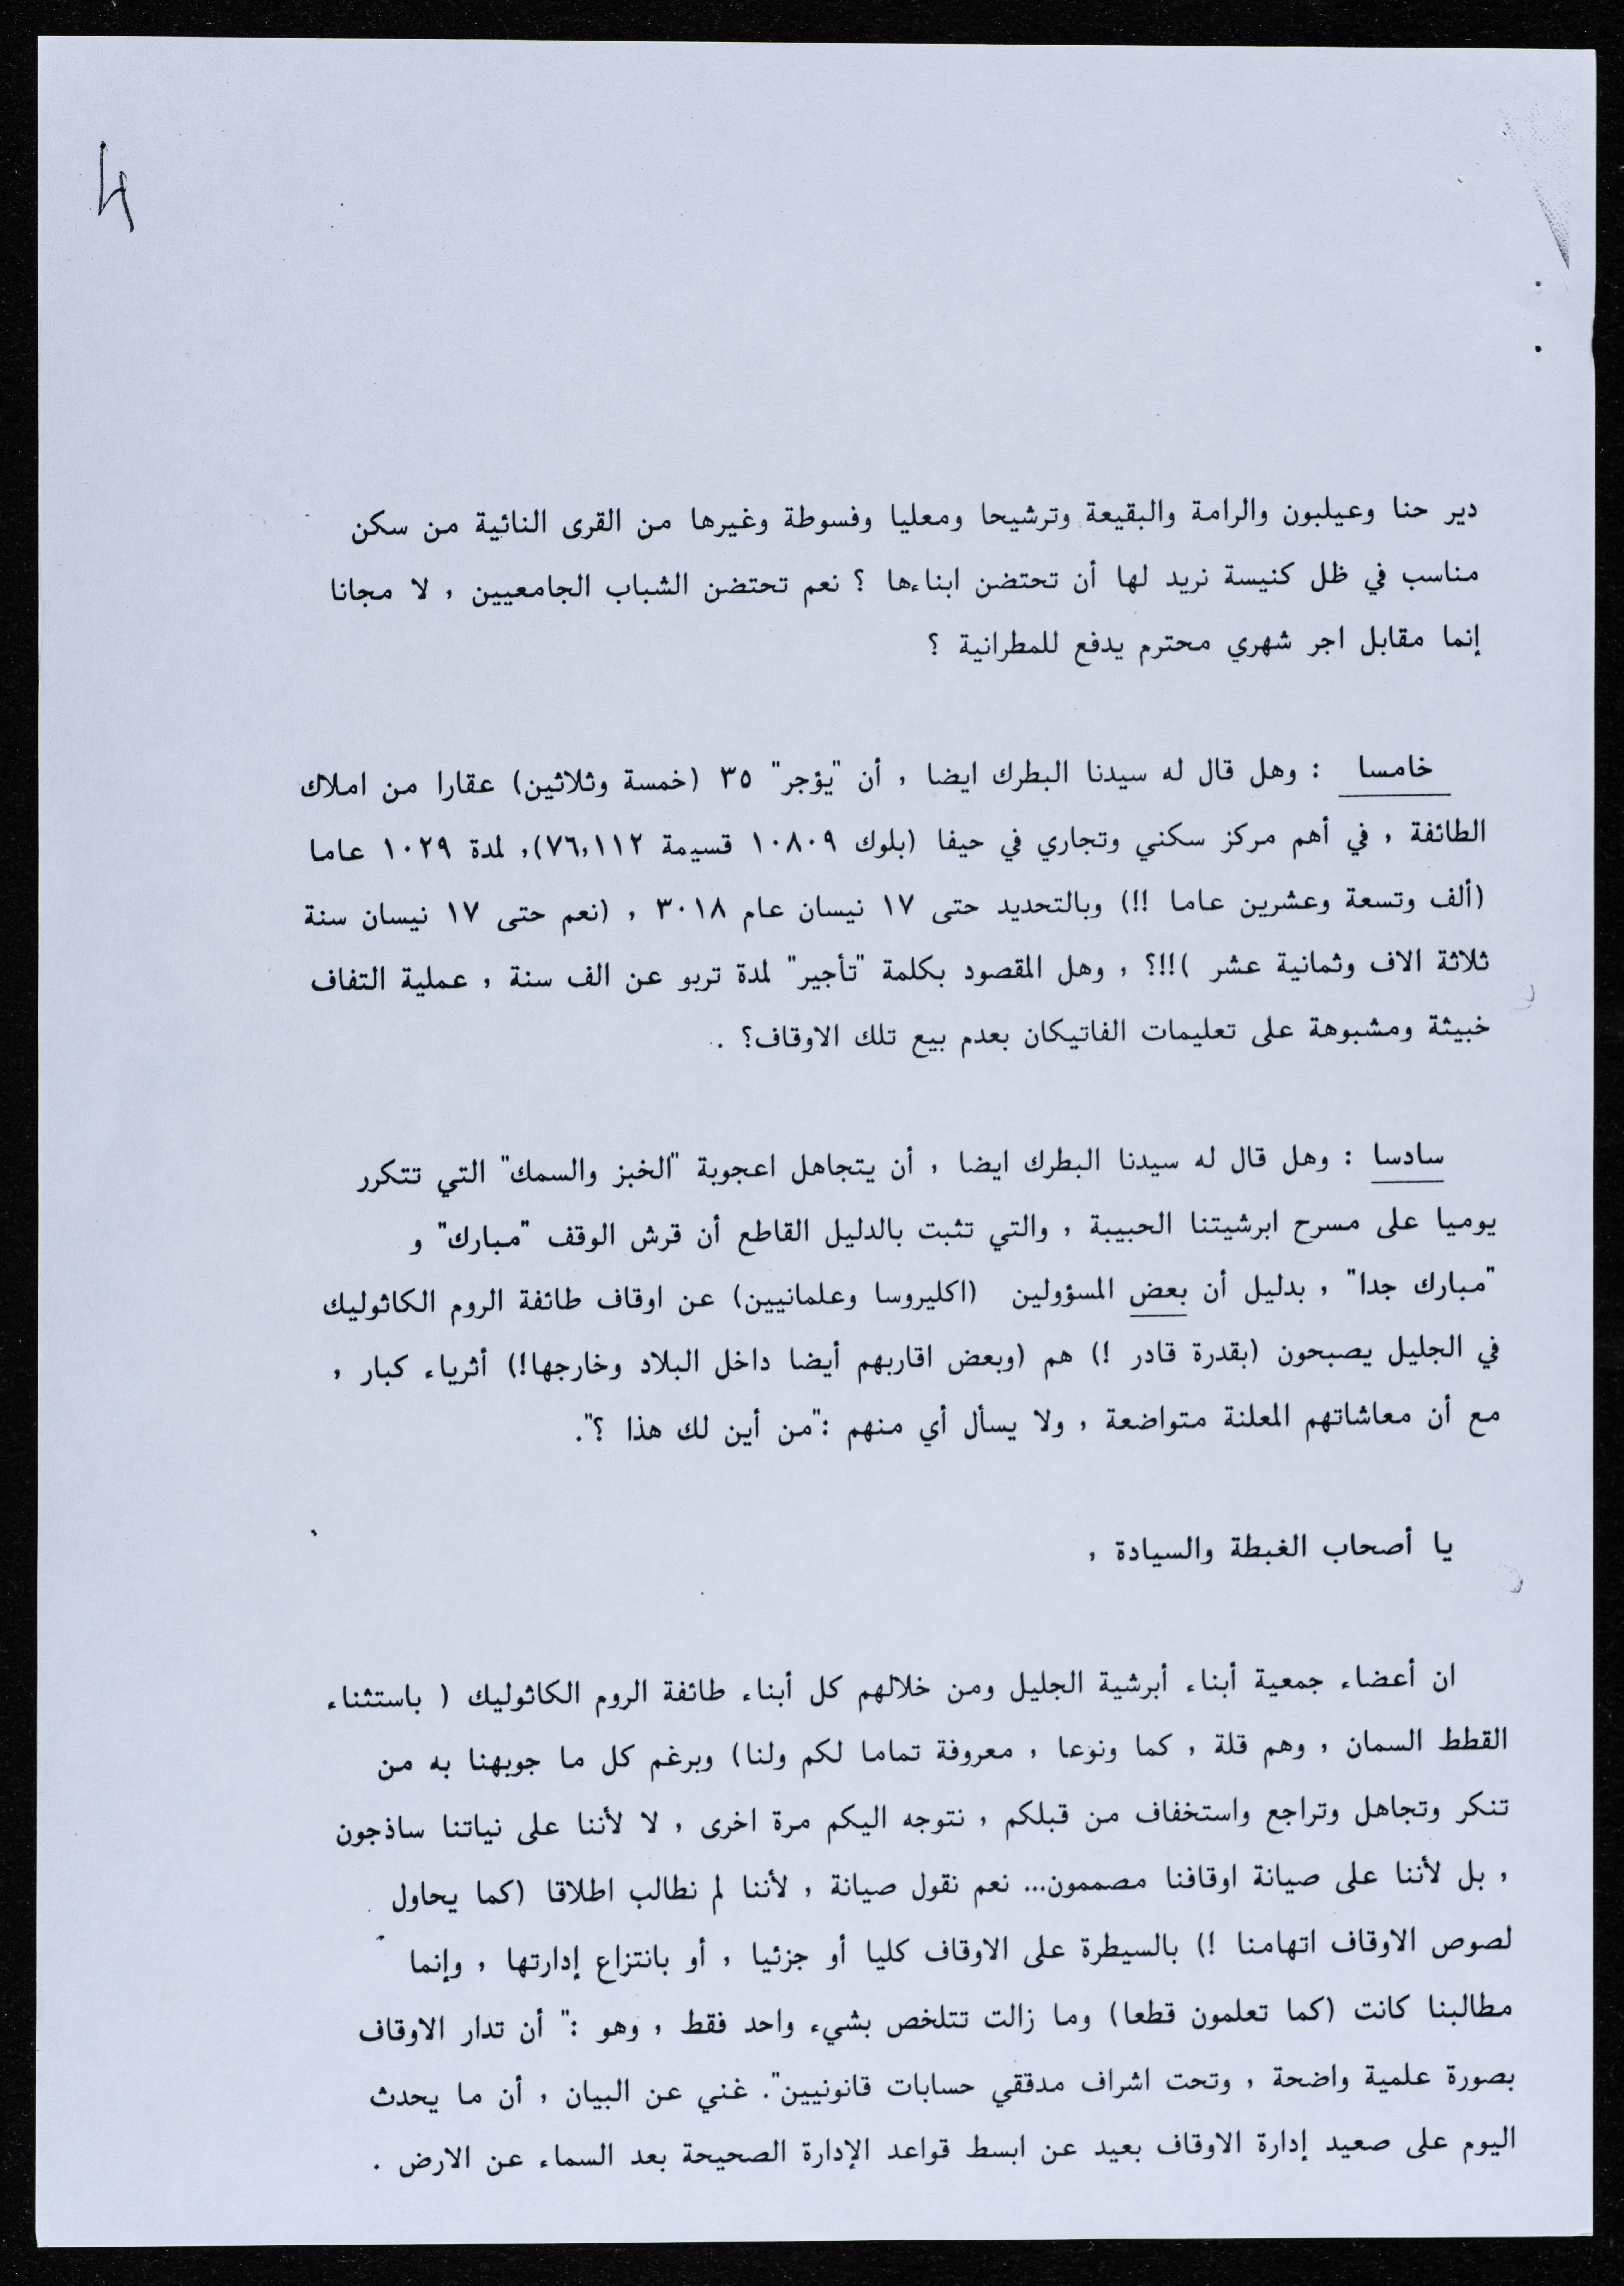 4
دير حنا وعيلبون والرامة والبقيعة وترشيحا ومعليا وفسوطة وغيرها من القرى النائية من سكن
مناسب في ظل كنيسة نريد لها أن تحتضن ابناءها ؟ نعم تحتضن الشباب الجامعيين , لا مجانا
إنما مقابل اجر شهري محترم يدفع للمطرانية ؟
خامسا : وهل قال له سيدنا البطرك ايضا , أن "يؤجر" ٣٥ (خمسة وثلاثين) عقارا من املاك
الطائفة , في أهم مركز سكني وتجاري في حيفا (بلوك ١٠٨٠٩ قسيمة ٧٦,١١٢), لمدة ١٠٢٩ عاما
(ألف وتسعة وعشرين عاما !!) وبالتحديد حتى ١٧ نيسان عام ٣٠١٨ , (نعم حتى ١٧ نيسان سنة
ثلاثة الاف وثمانية عشر )!!؟ , وهل المقصود بكلمة "تأجير" لمدة تربو عن الف سنة , عملية التفاف
خبيثة ومشبوهة على تعليمات الفاتيكان بعدم بيع تلك الاوقاف؟ .
سادسا : وهل قال له سيدنا البطرك ايضا , أن يتجاهل اعجوبة "الخبز والسمك" التي تتكرر
يوميا على مسرح ابرشيتنا الحبيبة , والتي تثبت بالدليل القاطع أن قرش الوقف "مبارك" و
"مبارك جدا" , بدليل أن بعض المسؤولين (اكليروسا وعلمانيين) عن اوقاف طائفة الروم الكاثوليك
في الجليل يصبحون (بقدرة قادر !) هم (وبعض اقاربهم أيضا داخل البلاد وخارجها!) أثرياء كبار ,
مع أن معاشاتهم المعلنة متواضعة , ولا يسأل أي منهم :"من أين لك هذا ؟".
يا أصحاب الغبطة والسيادة ,
ان أعضاء جمعية أبناء أبرشية الجليل ومن خلالهم كل أبناء طائفة الروم الكاثوليك ( باستثناء
القطط السمان , وهم قلة , كما ونوعا , معروفة تماما لكم ولنا) وبرغم كل ما جوبهنا به من
تنكر وتجاهل وتراجع واستخفاف من قبلكم , نتوجه اليكم مرة اخرى , لا لأننا على نياتنا ساذجون
, بل لأننا على صيانة اوقافنا مصممون... نعم نقول صيانة , لأننا لم نطالب اطلاقا (كما يحاول
لصوص الاوقاف اتهامنا !) بالسيطرة على الاوقاف كليا أو جزئيا , أو بانتزاع إدارتها , وإنما
مطالبنا كانت (كما تعلمون قطعا) وما زالت تتلخص بشيء واحد فقط , وهو :" أن تدار الاوقاف
بصورة علمية واضحة , وتحت اشراف مدققي حسابات قانونيين". غني عن البيان , أن ما يحدث
اليوم على صعيد إدارة الاوقاف بعيد عن ابسط قواعد الإدارة الصحيحة بعد السماء عن الارض .